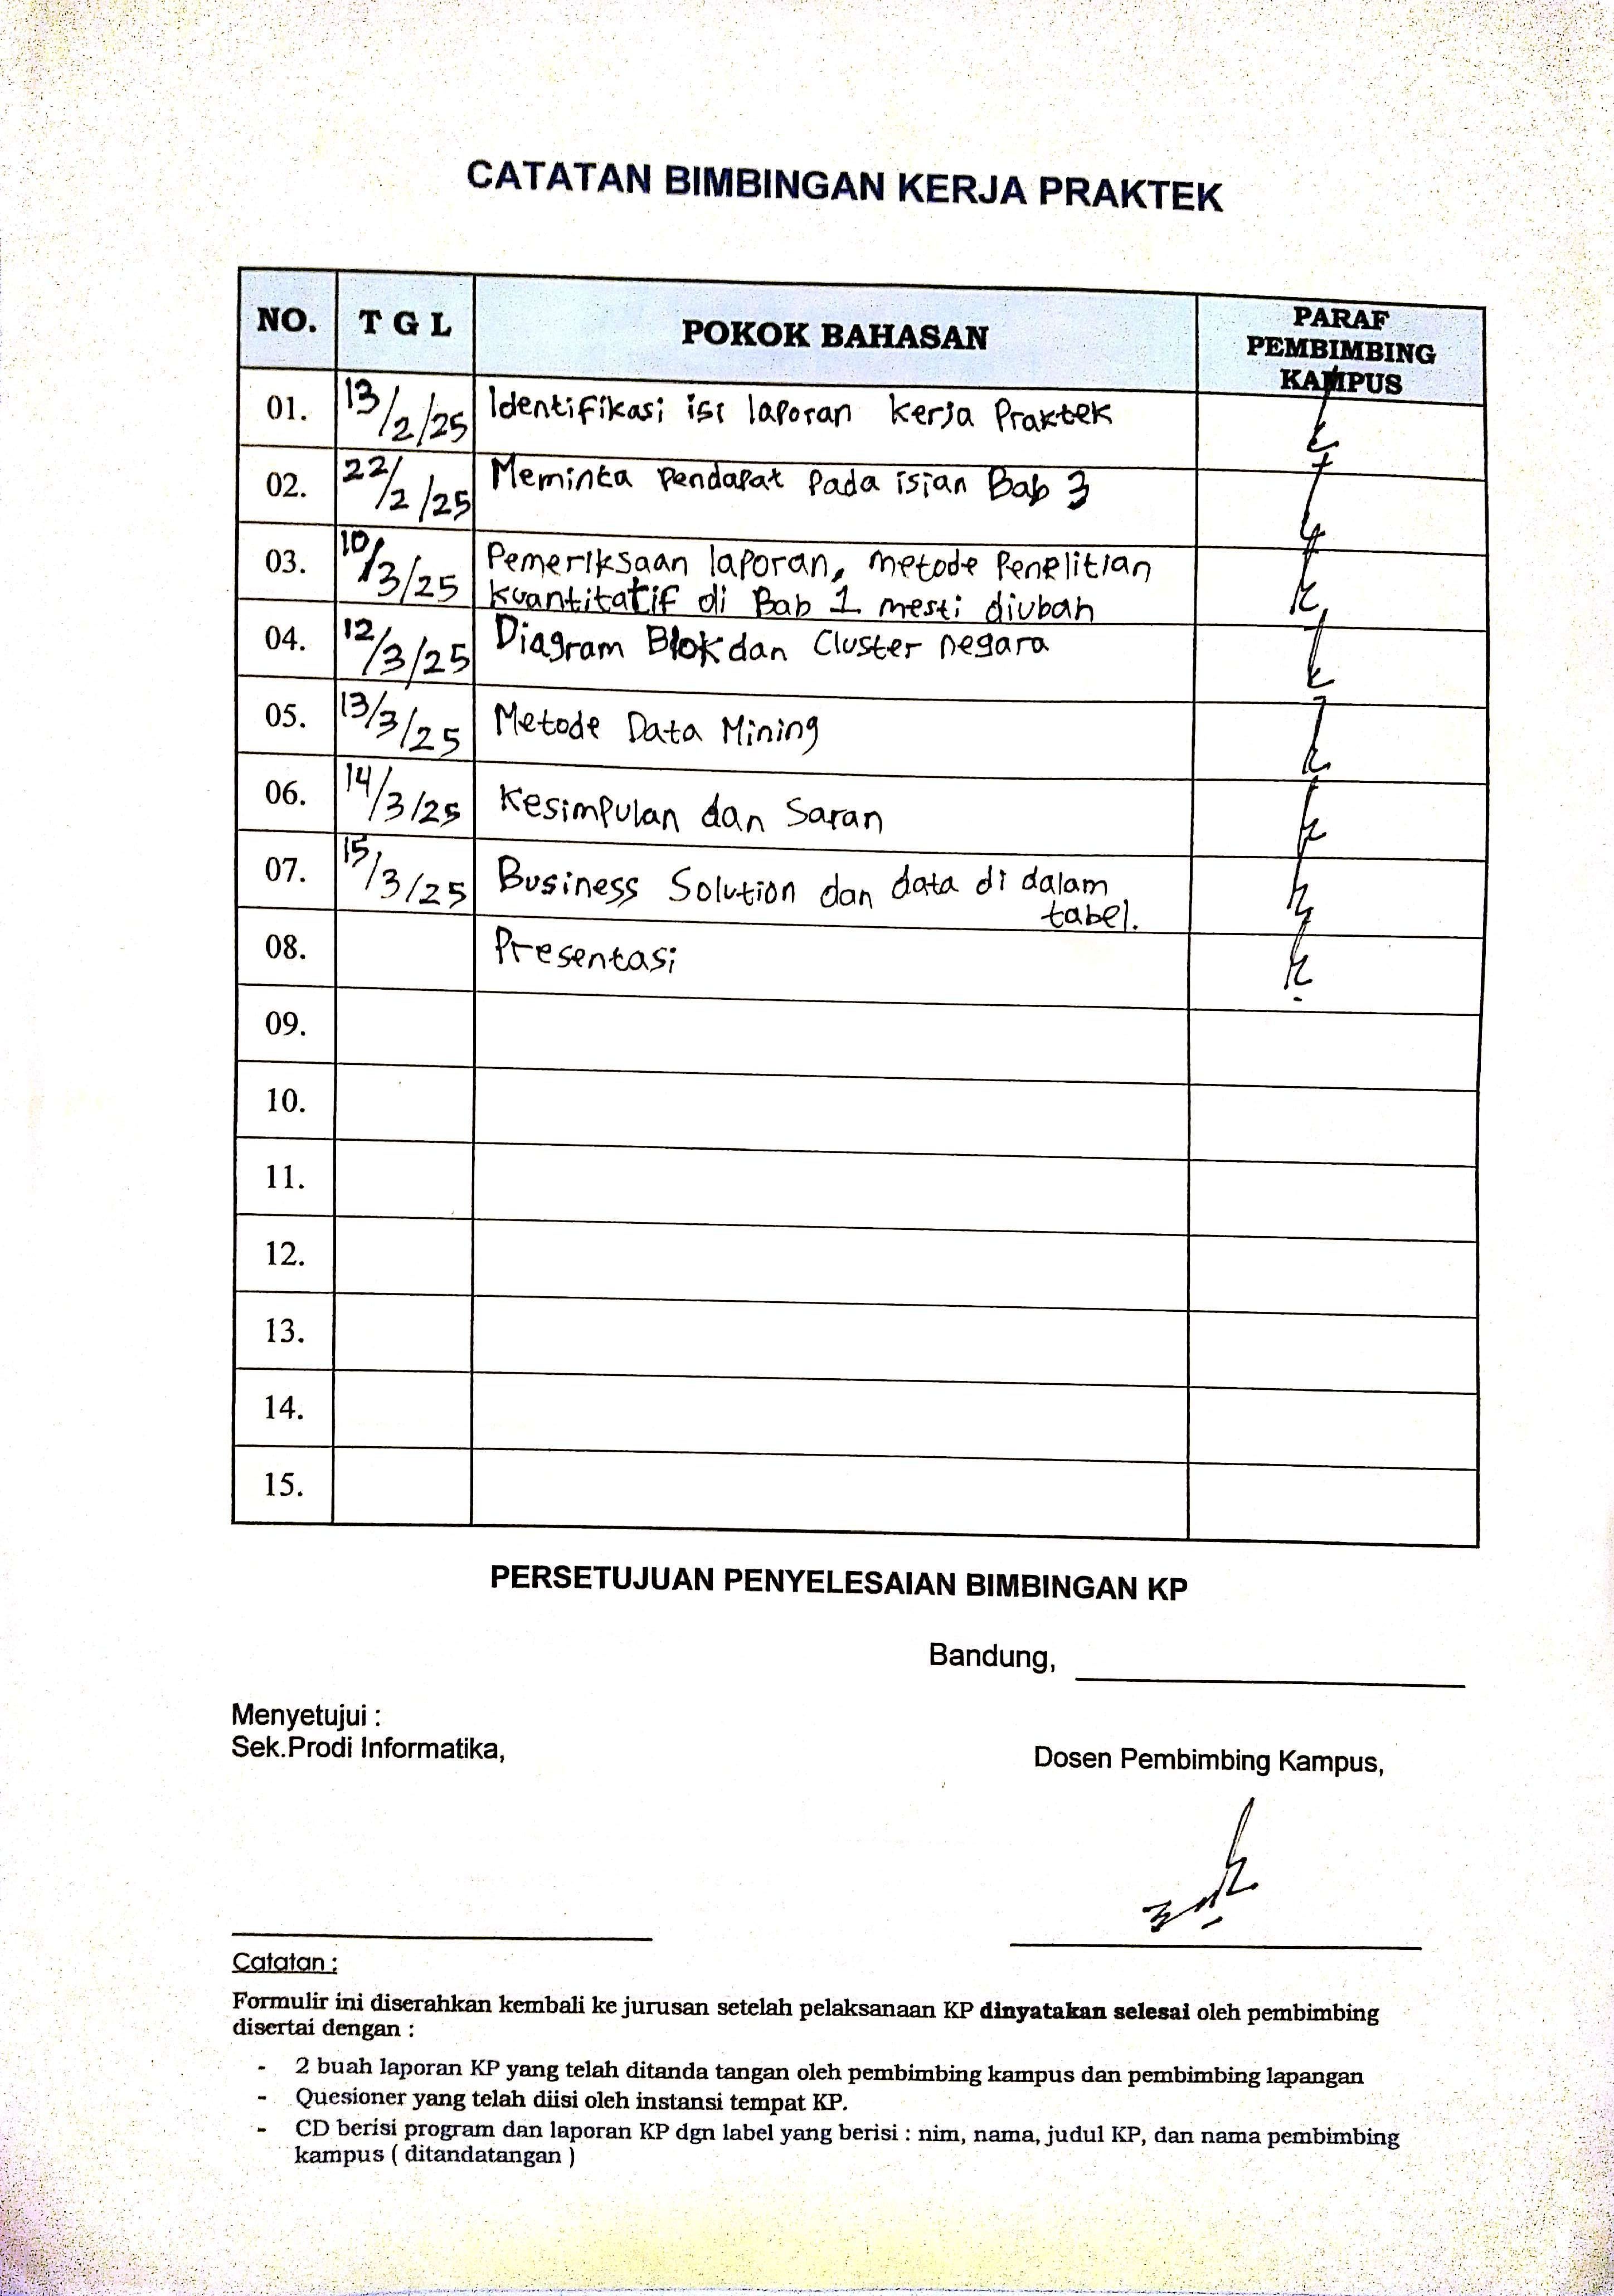 CATATAN BIMBINGAN KERJA PRAKTEK
NO. T G L POKOK BAHASAN PARAF PEMBIMBING KAMPUS
01. 13/2/25 Identifikasi isi laporan kerja Praktek
02. 22/2/25 Meminta Pendapat Pada isian Bab 3
03. 10/3/25 Pemeriksaan laporan, metode Penelitian
kuantitatif di Bab 1 mesti diubah
04. 12/3/25 Diagram Blok dan Cluster negara
05. 13/3/25 Metode Data Mining
06. 14/3/25 Kesimpulan dan Saran
07. 15/3/25 Business Solution dan data di dalam
tabel.
08. Presentasi
09.
10.
11.
12.
13.
14.
15.
PERSETUJUAN PENYELESAIAN BIMBINGAN KP
Bandung,
Menyetujui :
Sek.Prodi Informatika,
Dosen Pembimbing Kampus,
Catatan :
Formulir ini diserahkan kembali ke jurusan setelah pelaksanaan KP dinyatakan selesai oleh pembimbing
disertai dengan :
- 2 buah laporan KP yang telah ditanda tangan oleh pembimbing kampus dan pembimbing lapangan
- Quesioner yang telah diisi oleh instansi tempat KP.
- CD berisi program dan laporan KP dgn label yang berisi : nim, nama, judul KP, dan nama pembimbing
kampus ( ditandatangan )